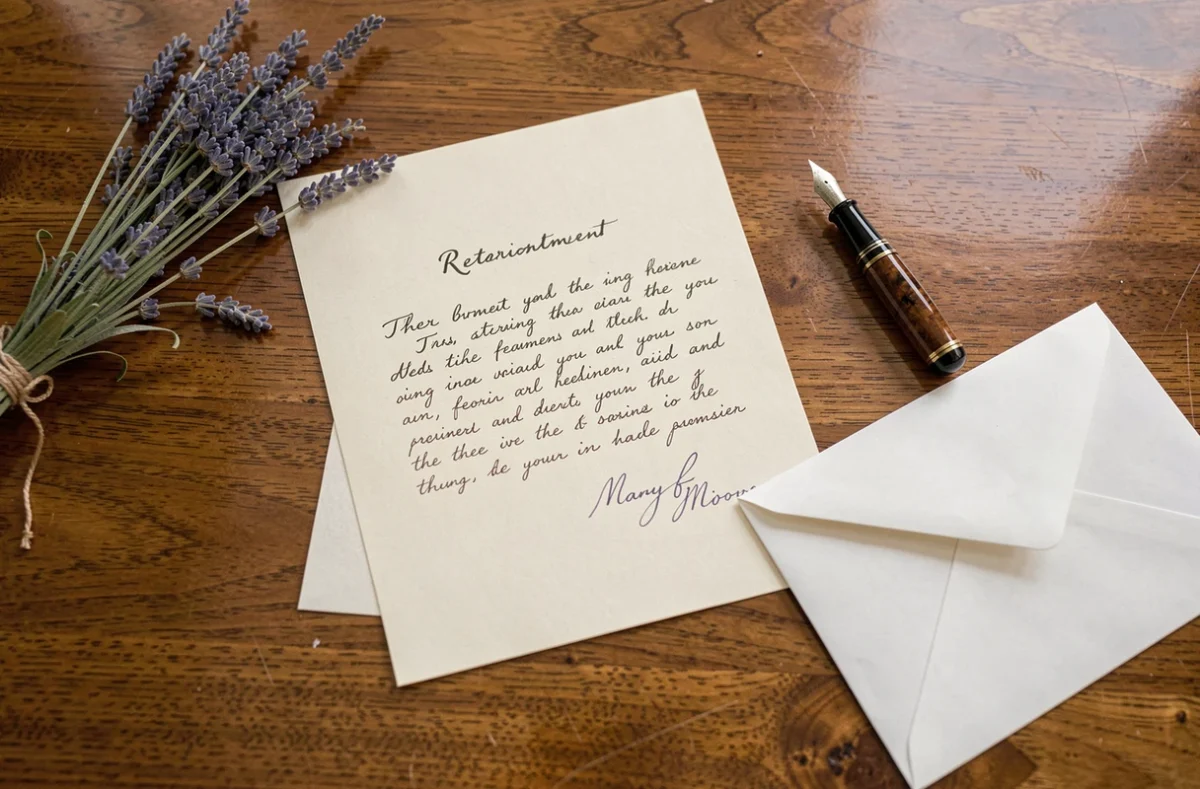 Retariontment
Ther bvmeit yond the ing herene
Tras, steruing thea eiare the you
tilhe feaumens and
oning inoe voiaud you anl your son
aun, feorin arl heelinen, aiid and
prerinert and dserts youn the y
the thee ive the & sarins io the
thung, be your in hade promsier
Many